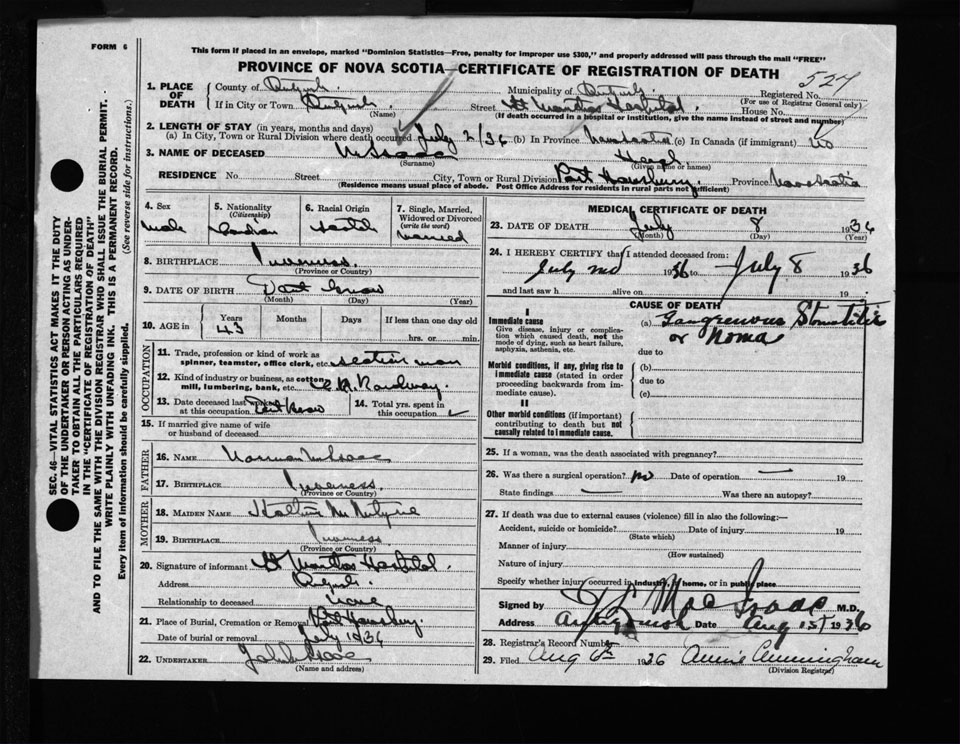 FORM 6
This form if placed in an envelope, marked "Dominion Statistics—Free, penalty for improper use $300," and properly addressed will pass through the mail "FREE"
PROVINCE OF NOVA SCOTIA—CERTIFICATE OF REGISTRATION OF DEATH
527
1. PLACE OF DEATH
County of Antigonish
Municipality of Antigonish
Registered No.
(For use of Registrar General only)
If in City or Town Antigonish
(Name)
Street St Marthas Hospital
House No.
(If death occurred in a hospital or institution, give the name instead of street and number)
2. LENGTH OF STAY (in years, months and days)
(a) In City, Town or Rural Division where death occurred July 2/36 (b) In Province Nova Scotia (c) In Canada (if immigrant)
3. NAME OF DECEASED McIsaac Hugh
(Surname) (Given name or names)
RESIDENCE No. Street City, Town or Rural Division Port Hawkesbury Province Nova Scotia
(Residence means usual place of abode. Post Office Address for residents in rural parts not sufficient)
4. Sex
male
5. Nationality
(Citizenship)
Canadian
6. Racial Origin
Scotch
7. Single, Married, Widowed or Divorced
(write the word)
married
8. BIRTHPLACE Inverness
(Province or Country)
9. DATE OF BIRTH Dont know
(Month) (Day) (Year)
10. AGE in
Years Months Days If less than one day old
43 hrs. or min.
OCCUPATION
11. Trade, profession or kind of work as spinner, teamster, office clerk, etc. section man
12. Kind of industry or business, as cotton mill, lumbering, bank, etc. Railway
13. Date deceased last at this occupation Dont know
14. Total yrs. spent in this occupation
15. If married give name of wife or husband of deceased
FATHER
16. NAME Norman McIsaac
17. BIRTHPLACE Inverness
(Province or Country)
MOTHER
18. MAIDEN NAME McIntyre
19. BIRTHPLACE Inverness
(Province or Country)
20. Signature of informant St Marthas Hospital
Address Antigonish
Relationship to deceased none
21. Place of Burial, Cremation or Removal Port Hawkesbury
Date of burial or removal July 1936
22. UNDERTAKER
(Name and address)
MEDICAL CERTIFICATE OF DEATH
23. DATE OF DEATH July 8 1936
(Month) (Day) (Year)
24. I HEREBY CERTIFY that I attended deceased from:
July 2nd 1936 to July 8 1936
and last saw h alive on 19
CAUSE OF DEATH
I
Immediate cause
Give disease, injury or complication which caused death, not the mode of dying, such as heart failure, asphyxia, asthenia, etc.
(a) Gangrenous Stomatitis
or Noma
due to
Morbid conditions, if any, giving rise to immediate cause (stated in order proceeding backwards from immediate cause).
(b)
due to
(c)
II
Other morbid conditions (if important) contributing to death but not causally related to immediate cause.
25. If a woman, was the death associated with pregnancy?
26. Was there a surgical operation? no Date of operation — 19
State findings — Was there an autopsy?
27. If death was due to external causes (violence) fill in also the following:—
Accident, suicide or homicide? Date of injury 19
(State which)
Manner of injury
(How sustained)
Nature of injury
Specify whether injury occurred in industry, home, or in public place
Signed by MacIsaac M.D.
Address Antigonish Date Aug 1st 1936
28. Registrar's Record Number
29. Filed Aug 6th 1936 Annie Cunningham
(Division Registrar)
SEC. 46—VITAL STATISTICS ACT MAKES IT THE DUTY
OF THE UNDERTAKER OR PERSON ACTING AS UNDERTAKER TO OBTAIN ALL THE PARTICULARS REQUIRED
IN THE "CERTIFICATE OF REGISTRATION OF DEATH"
AND TO FILE THE SAME WITH THE DIVISION REGISTRAR WHO SHALL ISSUE THE BURIAL PERMIT.
WRITE PLAINLY WITH UNFADING INK. THIS IS A PERMANENT RECORD.
Every item of information should be carefully supplied. (See reverse side for instructions.)